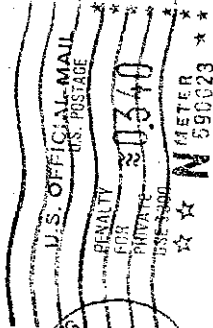 U.S. OFFICIAL MAIL
U.S. POSTAGE
PENALTY
FOR
PRIVATE
USE $300
≈0340
N METER
690023